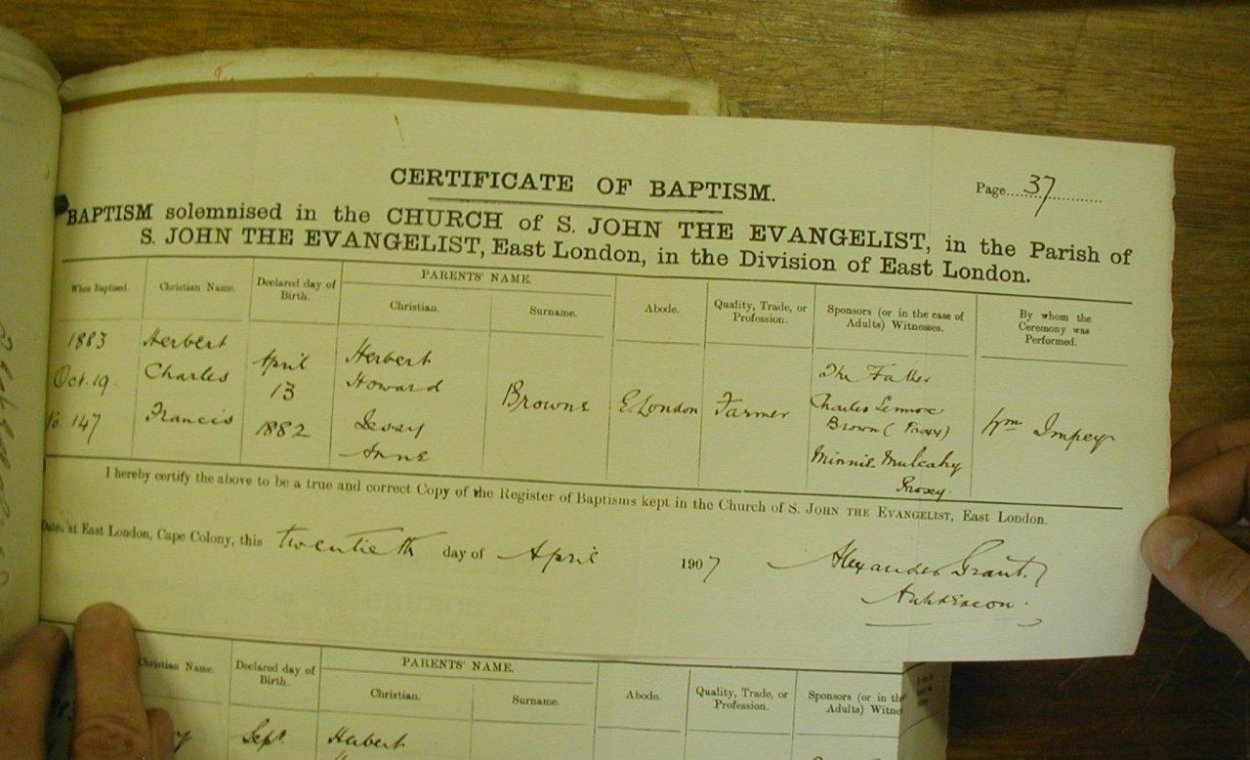 CERTIFICATE OF BAPTISM.
Page 37
BAPTISM solemnised in the CHURCH of S. JOHN THE EVANGELIST, in the Parish of
S. JOHN THE EVANGELIST, East London, in the Division of East London.
When Baptised.
Christian Name.
Declared day of
Birth.
PARENTS' NAME.
Christian.
Surname.
Abode.
Quality, Trade, or
Profession.
Sponsors (or in the case of
Adults) Witnesses.
By whom the
Ceremony was
Performed.
1883
Oct. 19.
No. 147
Herbert
Charles
Francis
April
13
1882
Herbert
Howard
Jessy
Anne
Browne
E. London
Farmer
The Father
Charles Lennox
Brown (Proxy)
Minnie Mulcahy
Proxy.
Wm Impey
I hereby certify the above to be a true and correct Copy of the Register of Baptisms kept in the Church of S. JOHN THE EVANGELIST, East London.
Date, at East London, Cape Colony, this twentieth day of April 1907
Alexander Grant.
Archdeacon.
Christian Name.
Declared day of
Birth.
PARENTS' NAME.
Christian.
Surname.
Abode.
Quality, Trade, or
Profession.
Sponsors (or in the
Adults) Witne
Sept.
Herbert